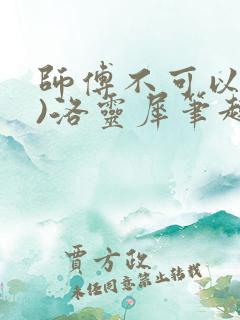 師傅不可以
)洛靈犀筆趣
賈方政
未經同意禁止转载